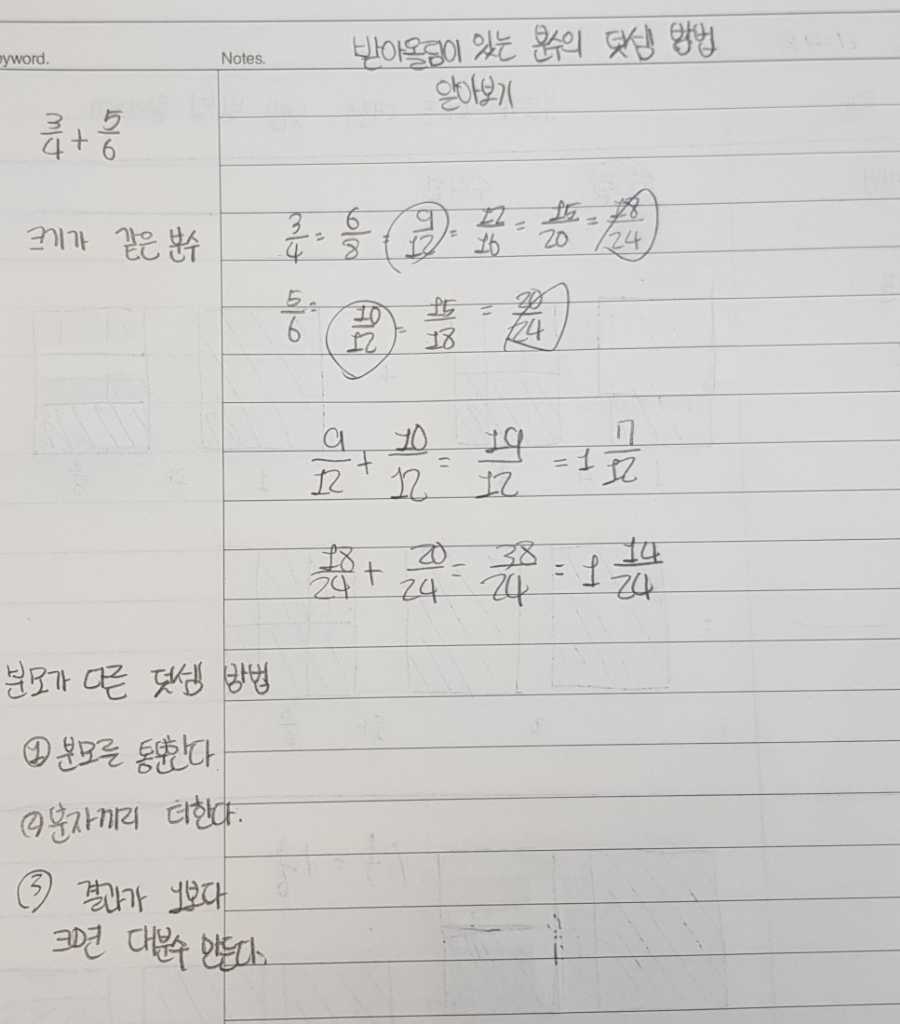 eyword.
Notes.
받아올림이 있는 분수의 덧셈 방법
알아보기
3/4 + 5/6
크기가 같은 분수
3/4 = 6/8 = 9/12 = 12/16 = 15/20 = 18/24
5/6 = 10/12 = 15/18 = 20/24
9/12 + 10/12 = 19/12 = 1 7/12
18/24 + 20/24 = 38/24 = 1 14/24
분모가 다른 덧셈 방법
① 분모를 통분한다
② 분자끼리 더한다.
③ 결과가 1보다
크면 대분수 만든다.